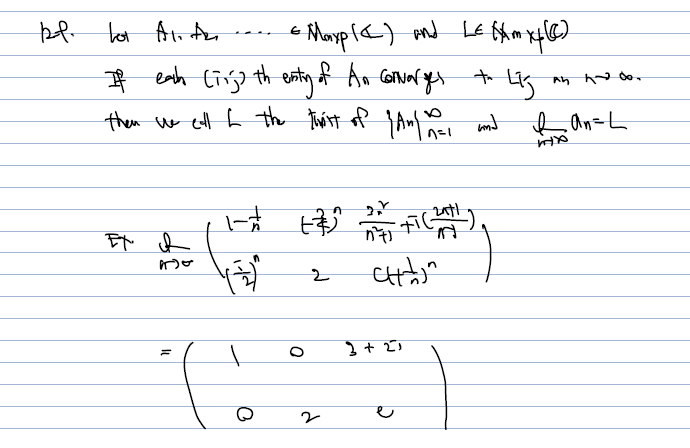 Def. Let A₁, A₂, ···· ∈ Mₘₓₚ(ℂ) and L ∈ Mₘₓₚ(ℂ)
If each (i,j)th entry of Aₙ converges to Lᵢⱼ as n→∞.
then we call L the limit of {Aₙ}ₙ₌₁^∞ and lim_{n→∞} aₙ = L
Ex lim_{n→∞} ( 1-1/n (-3/4)ⁿ 3n²/(n²+1) + i((2n+1)/(n-1))
(i/2)ⁿ 2 (1+1/n)ⁿ )
= ( 1 0 3+2i
0 2 e )